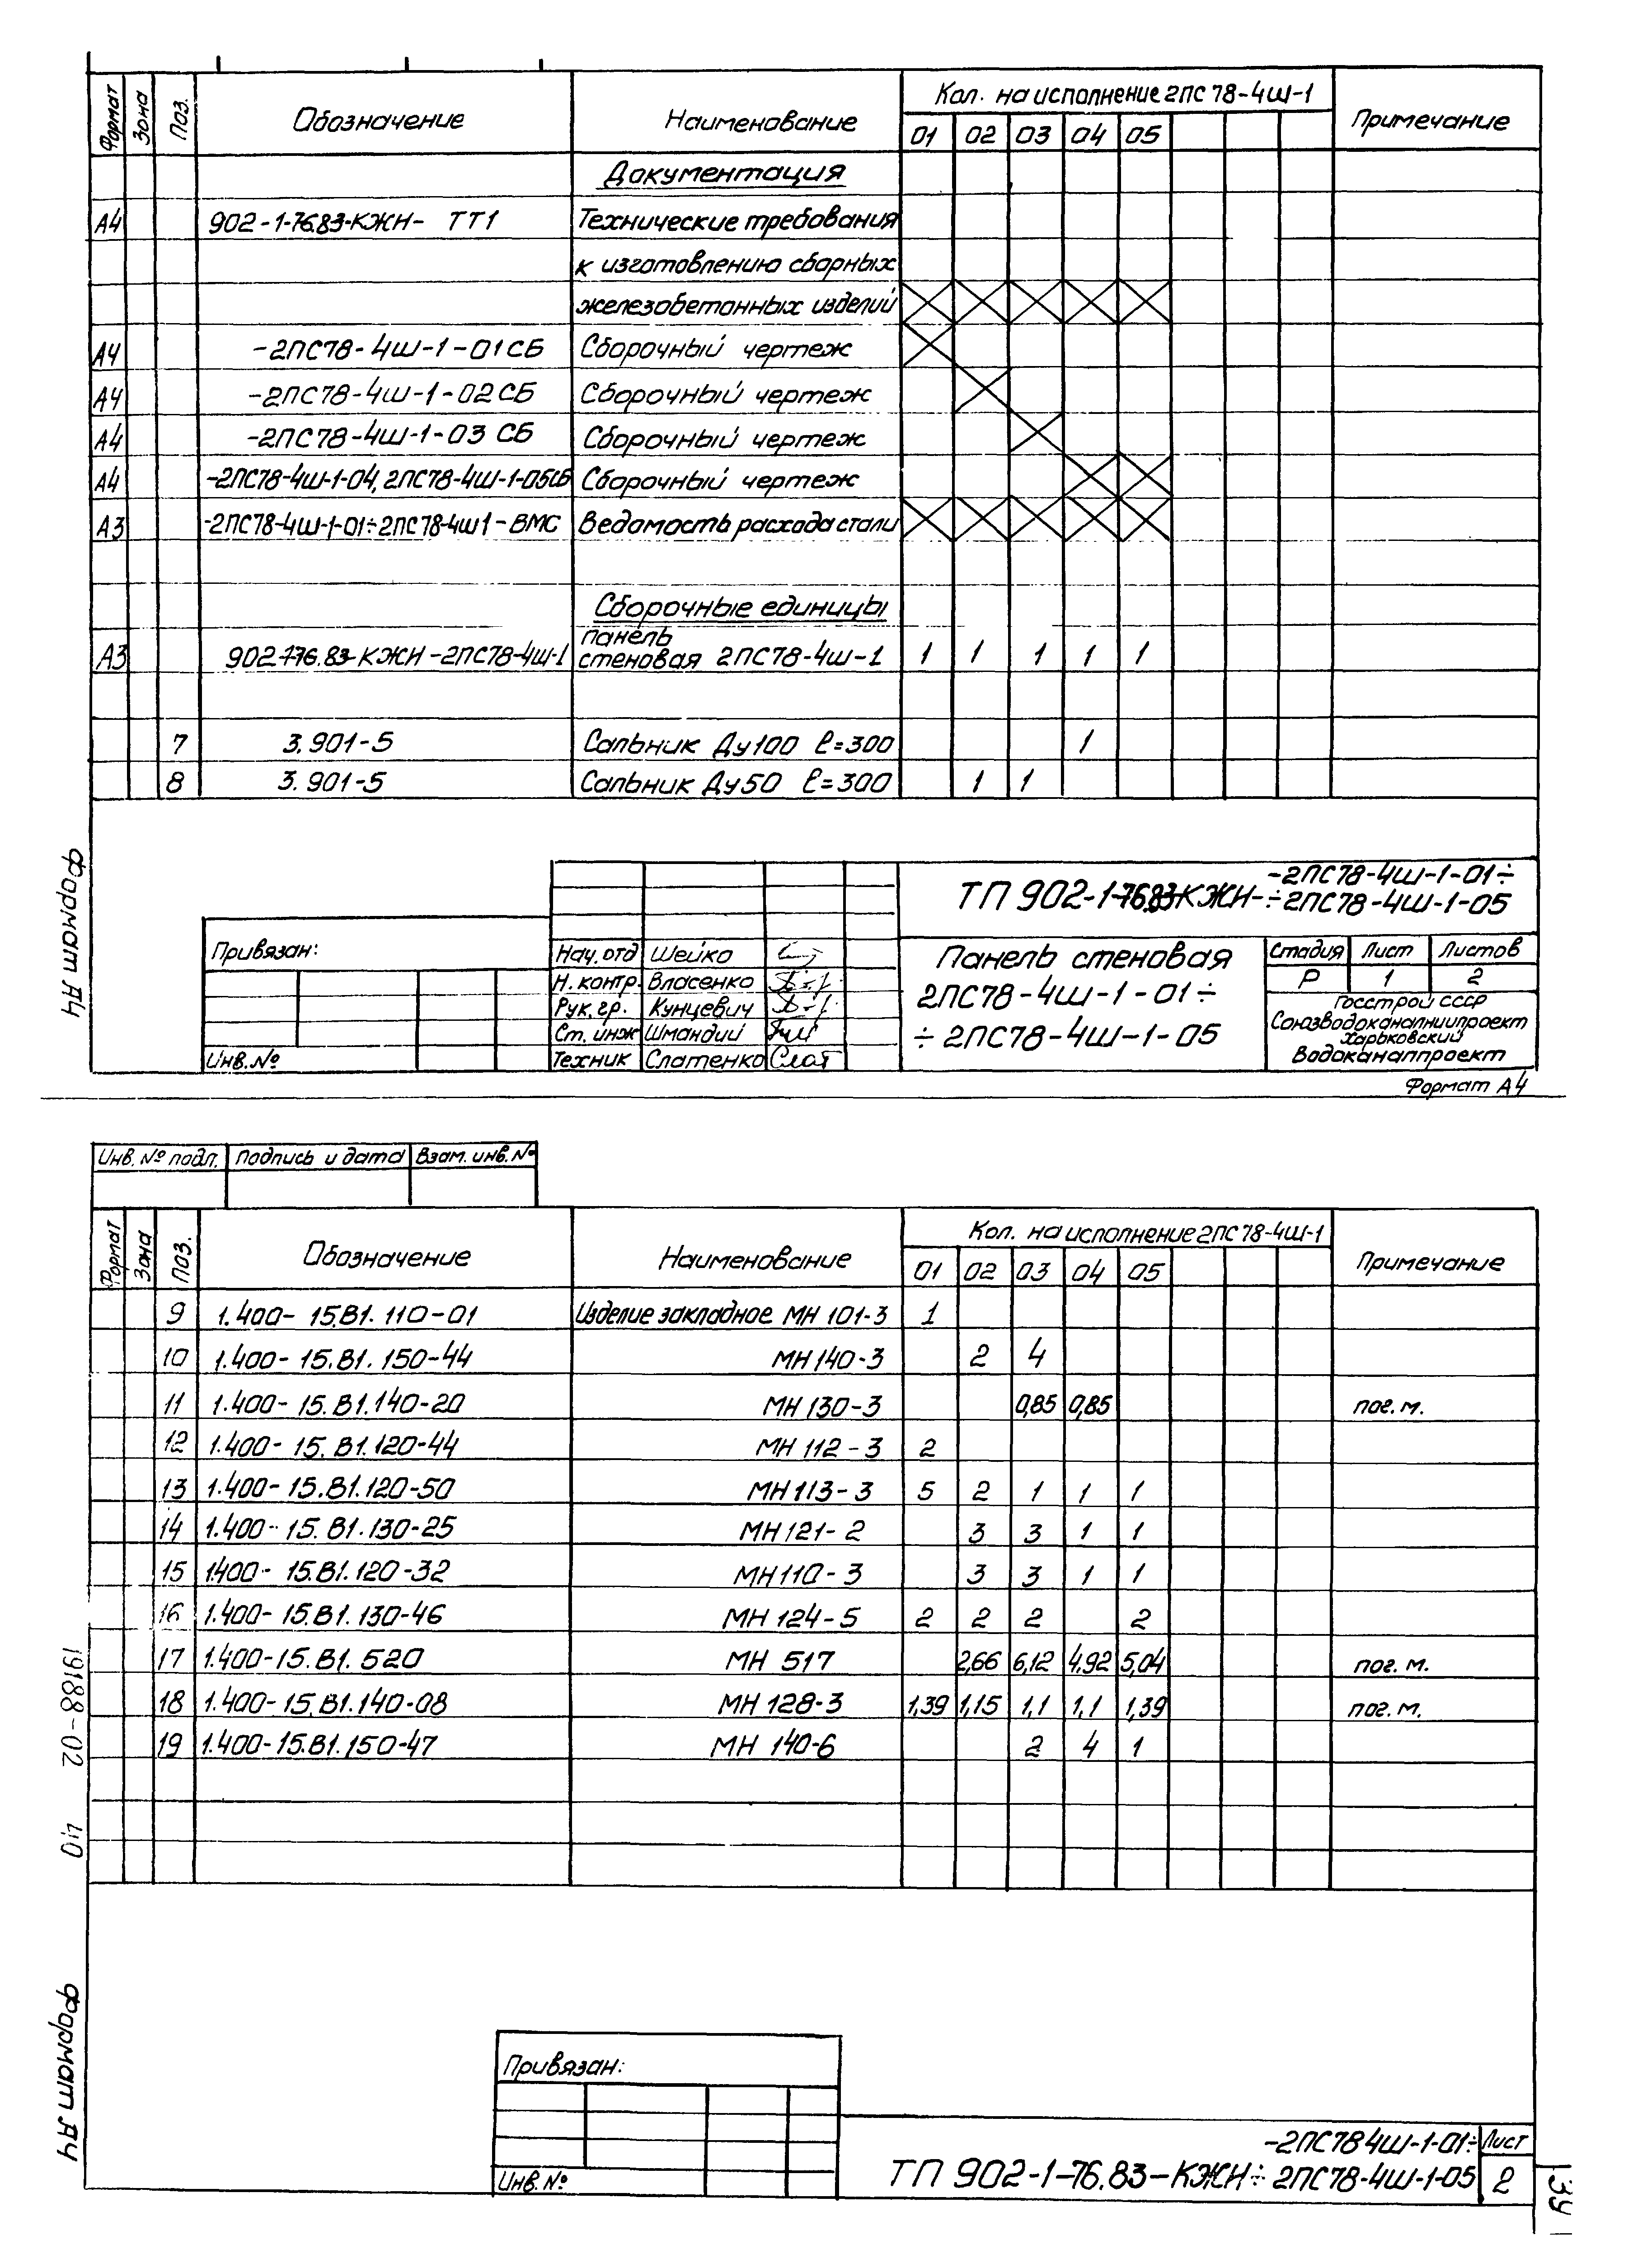 Формат Зона Поз. Обозначение Наименование Кол. на исполнение 2ПС78-4Ш-1 Примечание
01 02 03 04 05
Документация
А4 902-1-76.83-КЖИ- ТТ1 Технические требования
к изготовлению сборных
железобетонных изделий
А4 -2ПС78-4Ш-1-01СБ Сборочный чертеж
А4 -2ПС78-4Ш-1-02СБ Сборочный чертеж
А4 -2ПС78-4Ш-1-03 СБ Сборочный чертеж
А4 -2ПС78-4Ш-1-04, 2ПС78-4Ш-1-05СБ Сборочный чертеж
А3 -2ПС78-4Ш-1-01÷2ПС78-4Ш1-ВМС Ведомость расхода стали
Сборочные единицы
А3 902-1-76.83-КЖИ-2ПС78-4Ш-1 панель стеновая 2ПС78-4Ш-1 1 1 1 1 1
7 3.901-5 Сальник Ду100 ℓ=300 1
8 3.901-5 Сальник Ду50 ℓ=300 1 1
Формат А4
Привязан:
Инв.№
Нач.отд Шейко
Н.контр. Власенко
Рук.гр. Кунцевич
Ст.инж Шмандий
Техник Слатенко Слат
ТП 902-1-76.83-КЖИ- -2ПС78-4Ш-1-01÷
÷2ПС78-4Ш-1-05
Панель стеновая
2ПС78-4Ш-1-01÷
÷2ПС78-4Ш-1-05
Стадия Лист Листов
Р 1 2
Госстрой СССР
Союзводоканалниипроект
Харьковский
Водоканалпроект
Формат А4
Инв.№ подл. Подпись и дата Взам.инв.№
Формат Зона Поз. Обозначение Наименование Кол. на исполнение 2ПС78-4Ш-1 Примечание
01 02 03 04 05
9 1.400-15.В1.110-01 Изделие закладное МН 101-3 1
10 1.400-15.В1.150-44 МН 140-3 2 4
11 1.400-15.В1.140-20 МН 130-3 0,85 0,85 пог.м.
12 1.400-15.В1.120-44 МН 112-3 2
13 1.400-15.В1.120-50 МН 113-3 5 2 1 1 1
14 1.400-15.В1.130-25 МН 121-2 3 3 1 1
15 1.400-15.В1.120-32 МН 110-3 3 3 1 1
16 1.400-15.В1.130-46 МН 124-5 2 2 2 2
17 1.400-15.В1.520 МН 517 2,66 6,12 4,92 5,04 пог.м.
18 1.400-15.В1.140-08 МН 128-3 1,39 1,15 1,1 1,1 1,39 пог.м.
19 1.400-15.В1.150-47 МН 140-6 2 4 1
19188-02 40
Формат А4
Привязан:
Инв.№
-2ПС78 4Ш-1-01÷
ТП 902-1-76.83-КЖИ÷2ПС78-4Ш-1-05
Лист
2
39